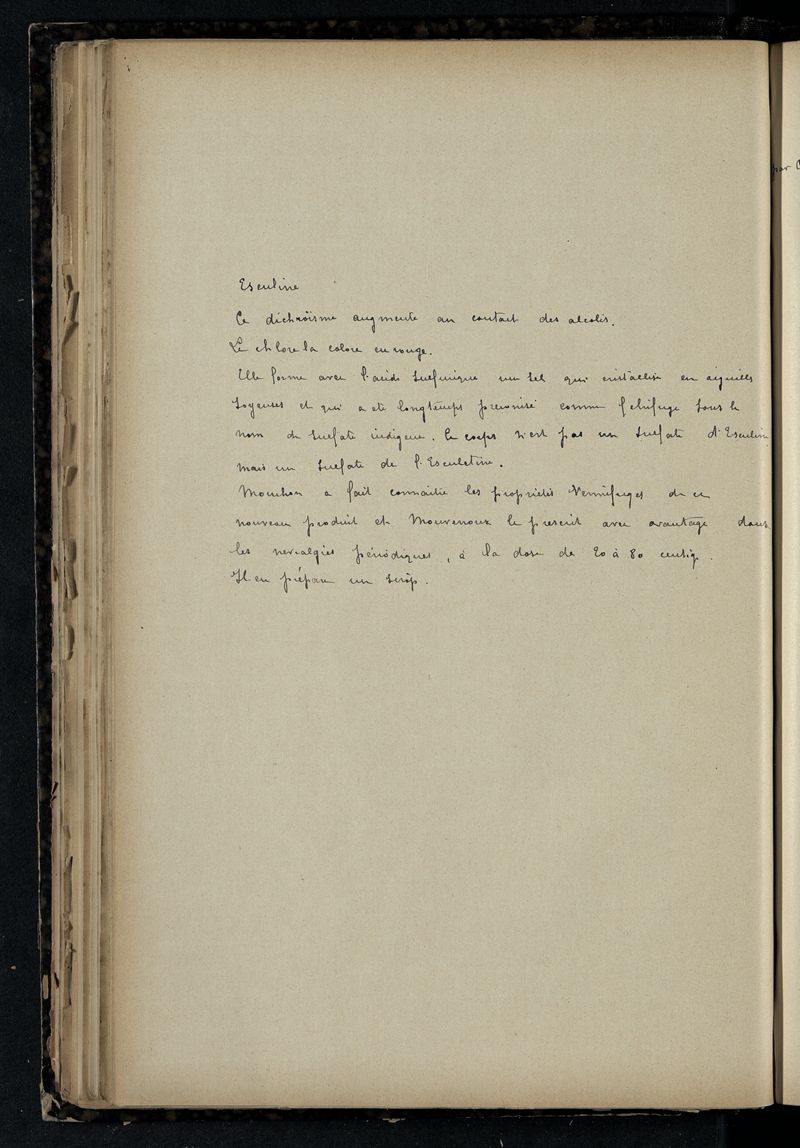 Esculine
Ce dichroïsme augmente au contact des alcalis.
Le chlore la colore en rouge.
Elle forme avec l'acide sulfurique un sel qui cristallise en aiguilles
soyeuses et qui a été longtemps préconisé comme fébrifuge sous le
nom de sulfate indigène. Ce corps n'est pas un sulfate d'Esculine
mais un sulfate de l'Esculetine.
Mouchon a fait connaître les propriétés Vermifuges de ce
nouveau produit et Mouvenoux le prescrit avec avantage dans
les nevralgies périodiques, à la dose de 20 à 80 centig.
Il en prépare un sirop.
par